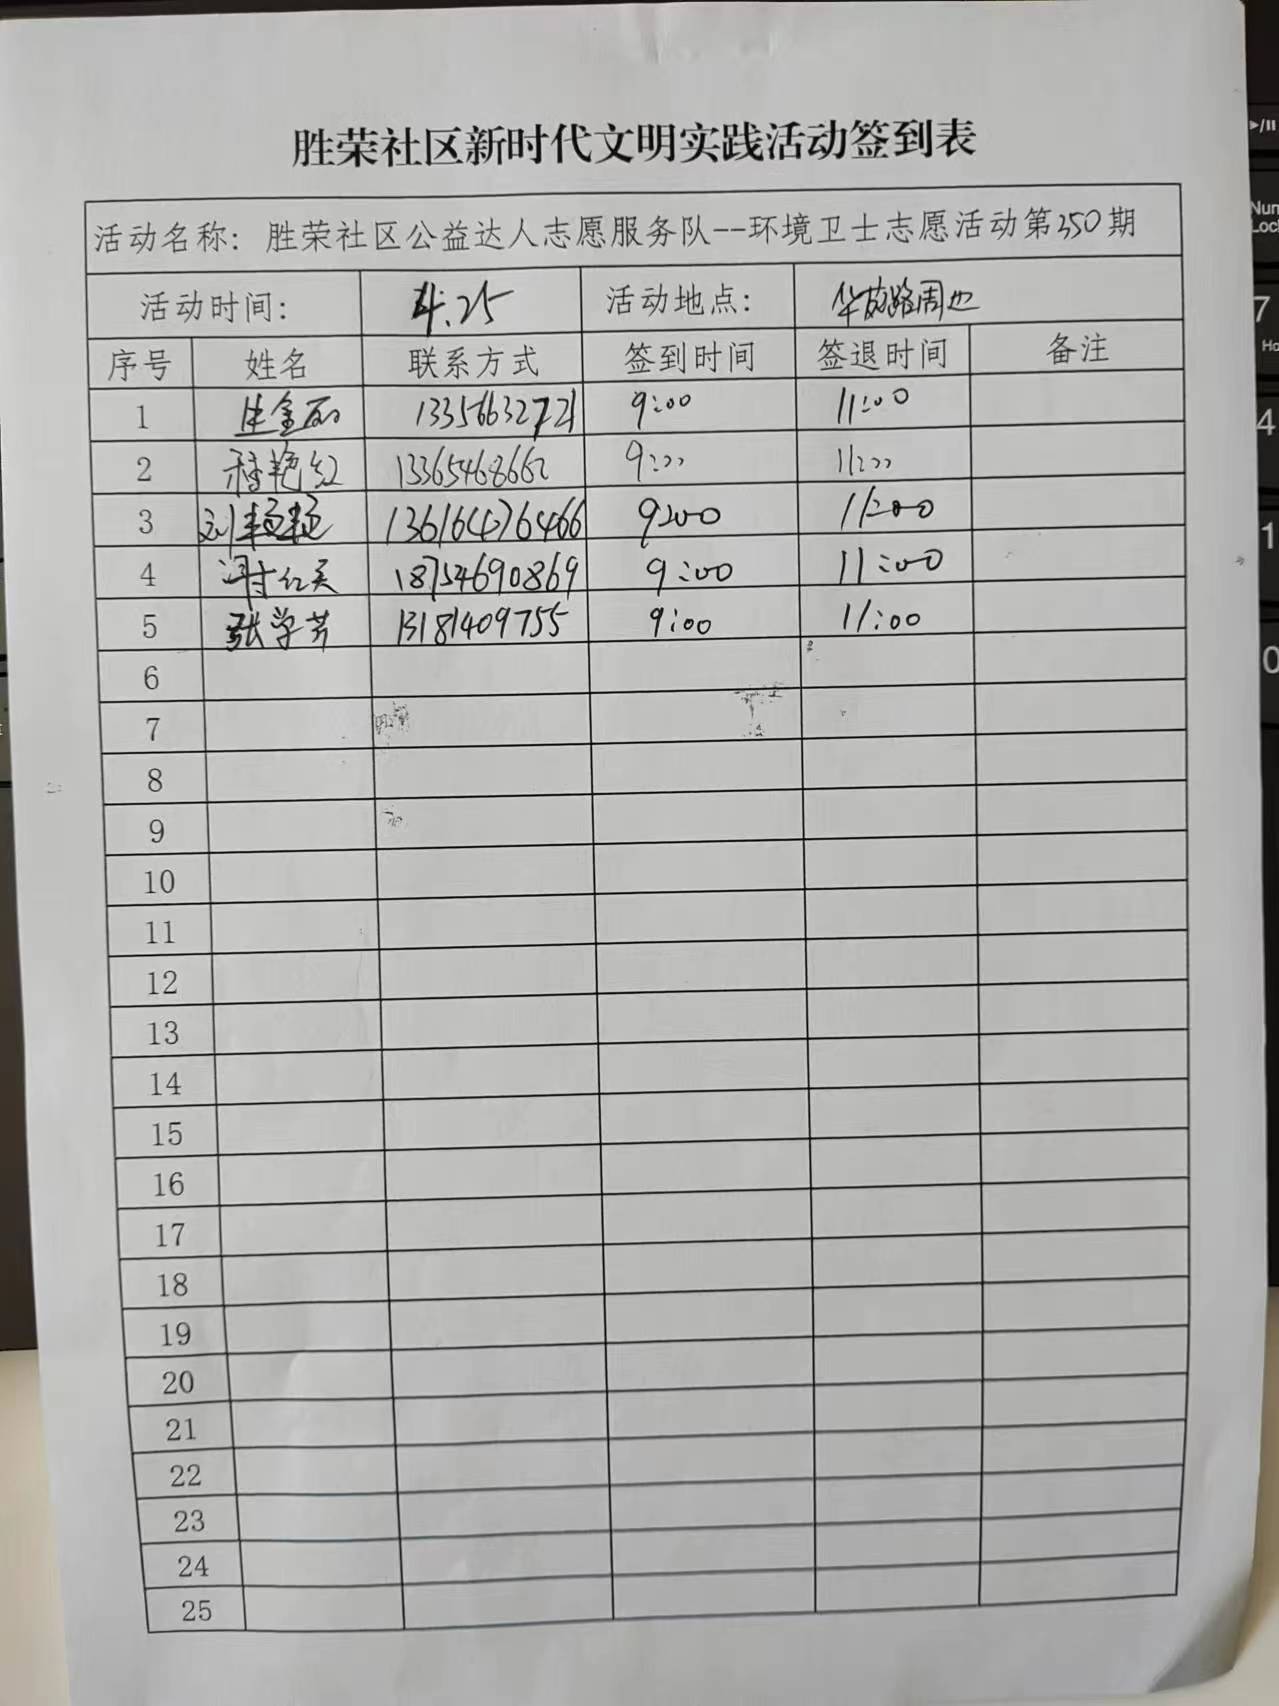 胜荣社区新时代文明实践活动签到表
活动名称：胜荣社区公益达人志愿服务队--环境卫士志愿活动第350期
活动时间： 4.25 活动地点： 路周边
序号 姓名 联系方式 签到时间 签退时间 备注
1 13356632721 9:00 11:00
2 艳红 13365468662 9:00 11:00
3 刘 9:00 11:00
4 红英 18754690869 9:00 11:00
5 张学芳 13181409755 9:00 11:00
6
7
8
9
10
11
12
13
14
15
16
17
18
19
20
21
22
23
24
25
Num
Lock
7
4
1
0